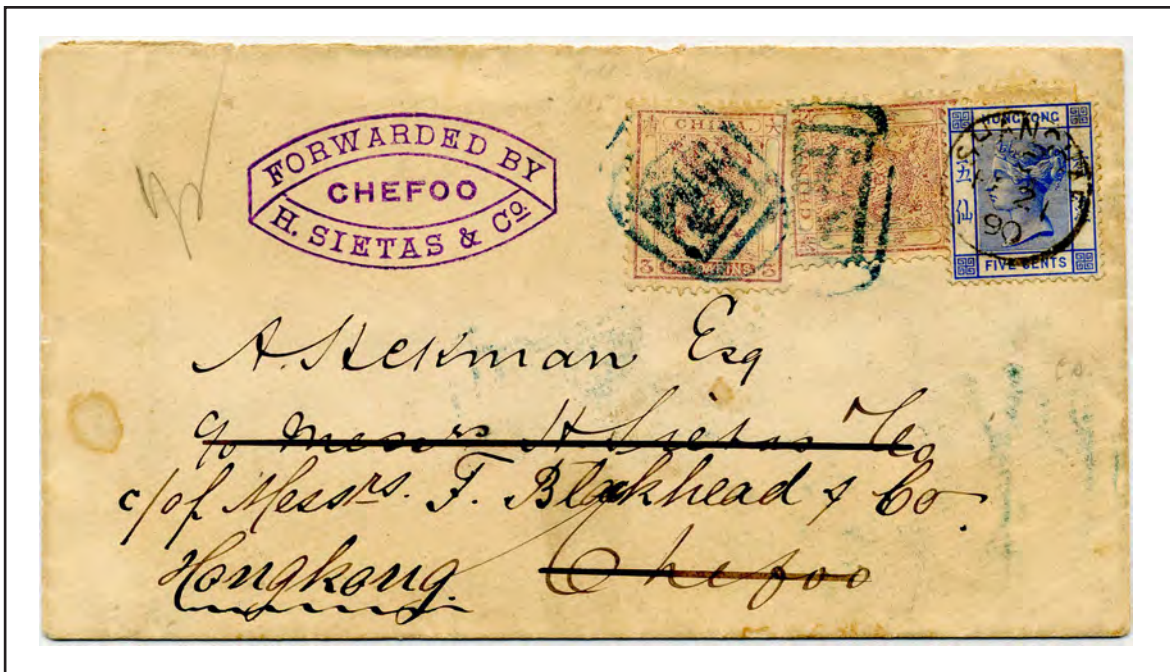 FORWARDED BY
CHEFOO
H. SIETAS & Co
CHINA
3 CANDARINS 3
大
清
CHINA
HONGKONG
五
仙
FIVE CENTS
SHANGHAI
90
A. Stekman Esq
c/o Messrs H Sietas & Co
c/of Messrs. F. Blackhead & Co.
Hongkong. Chefoo